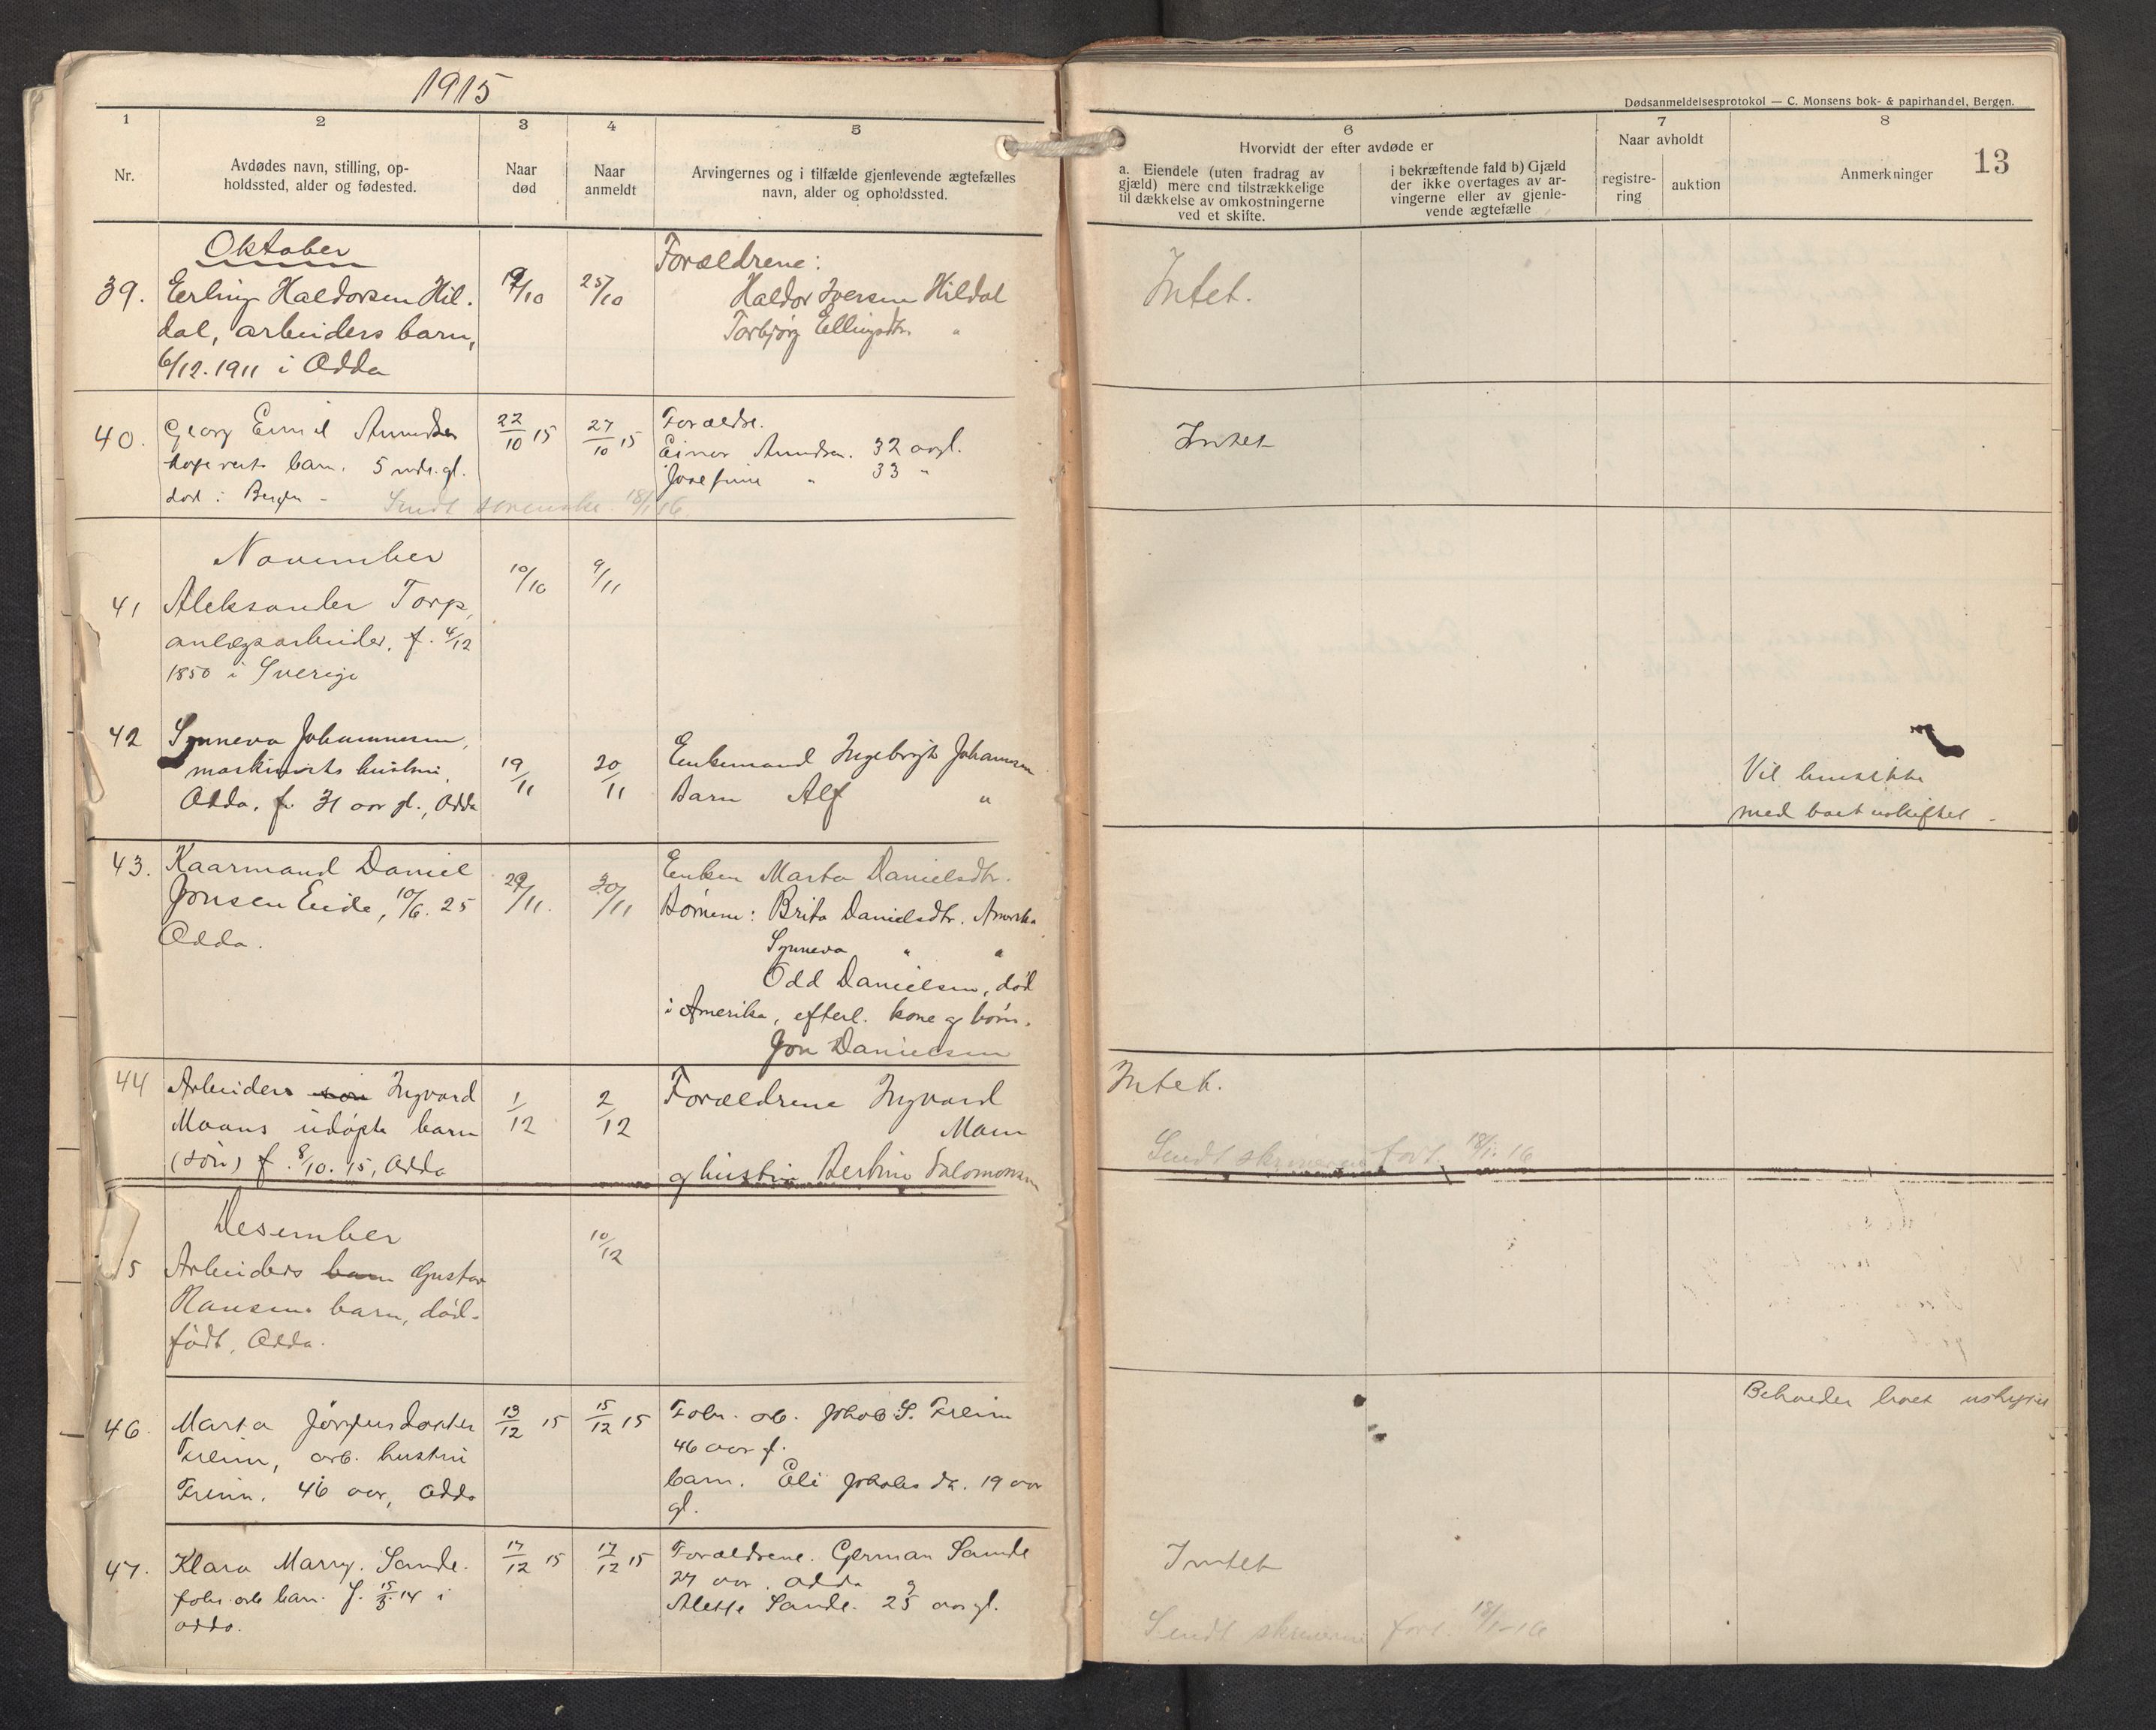 1915
Dødsanmeldelsesprotokol — C. Monsens bok- & papirhandel, Bergen.
13
1
Nr.
2
Avdødes navn, stilling, op-
holdssted, alder og fødested.
3
Naar
død
4
Naar
anmeldt
5
Arvingernes og i tilfælde gjenlevende ægtefælles
navn, alder og opholdssted.
6
Hvorvidt der efter avdøde er
a. Eiendele (uten fradrag av
gjæld) mere end tilstrækkelige
til dækkelse av omkostningerne
ved et skifte.
i bekræftende fald b) Gjæld
der ikke overtages av ar-
vingerne eller av gjenle-
vende ægtefælle
7
Naar avholdt
registre-
ring
auktion
8
Anmerkninger
Oktober
39.
Erling Haldorsen Hil-
dal, arbeiders barn,
6/12.1911 i Odda
19/10
25/10
Forældrene:
Haldor Iversen Hildal
Torbjørg Ellingsdtr. "
Intet.
40.
Georg Emil Amundsen
barn. 5 mdr. gl.
død i Bergen -
22/10 15
27/10 15
Forældre.
Einar Amundsen. 32 aar gl.
Josefine " 33 "
Intet
Sendt 18/1 16.
November
41
Aleksander Torp,
anlægsarbeider, f. 4/12
1850 i Sverige
10/10
9/11
42
Synneva Johannesen,
maskinists hustru,
Odda, 31 aar gl., Odda
19/11
20/11
Enkemand Ingebrigt Johannesen
Barn Alf "
Vil
med boet uskiftet -
43.
Kaarmand Daniel
Jonsen Eide, 10/6. 25
Odda.
29/11.
30/11
Enken Marta Danielsdtr.
Børnene: Brita Danielsdtr. Amerika
Synneva " "
Odd Danielsen, død
i Amerika, efterl. kone og børn.
Jon Danielsen
44
Arbeiders søn Ingvard
Moans udøpte barn
(søn) f. 8/10. 15, Odda
1/12
2/12
Forældrene Ingvard
Moan
og hustru Bertine Salomonsen
Intet.
Sendt skriveren fort. 18/1. 16
Desember
5
Arbeiders barn Gustav
Hansens barn, død-
født, Odda.
10/12
46.
Marta Jørgensdotter
Freim, arb. hustru
Freim. 46 aar, Odda
13/12 15
15/12 15
Fabr. arb. Jakob S. Freim
46 aar gl.
barn. Eli Jakobs dtr. 19 aar
gl.
Beholder boet uskiftet
47.
Klara Marry. Sande.
fabr. arb. barn. f. 15/3 14 i
Odda.
17/12 15
17/12 15
Forældrene. German Sande
27 aar. Odda og
Alette Sande. 25 aar gl.
Intet
Sendt skriveren fort. 18/1-16